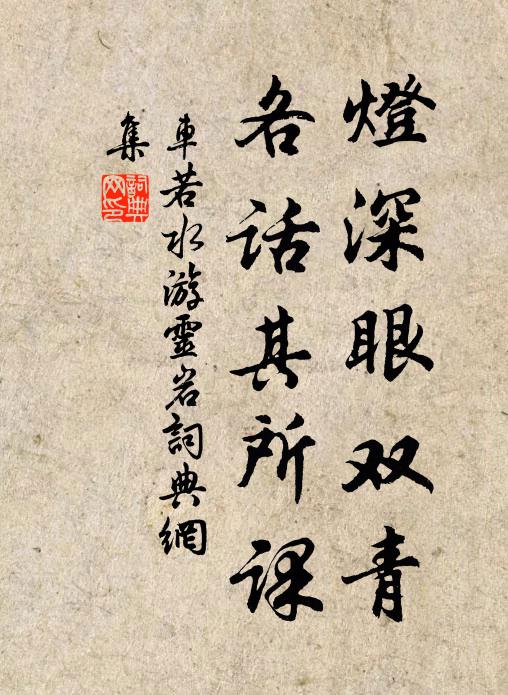 燈深眼双青
各话其所课
車若水游靈岩詞典網
集
詞典网印